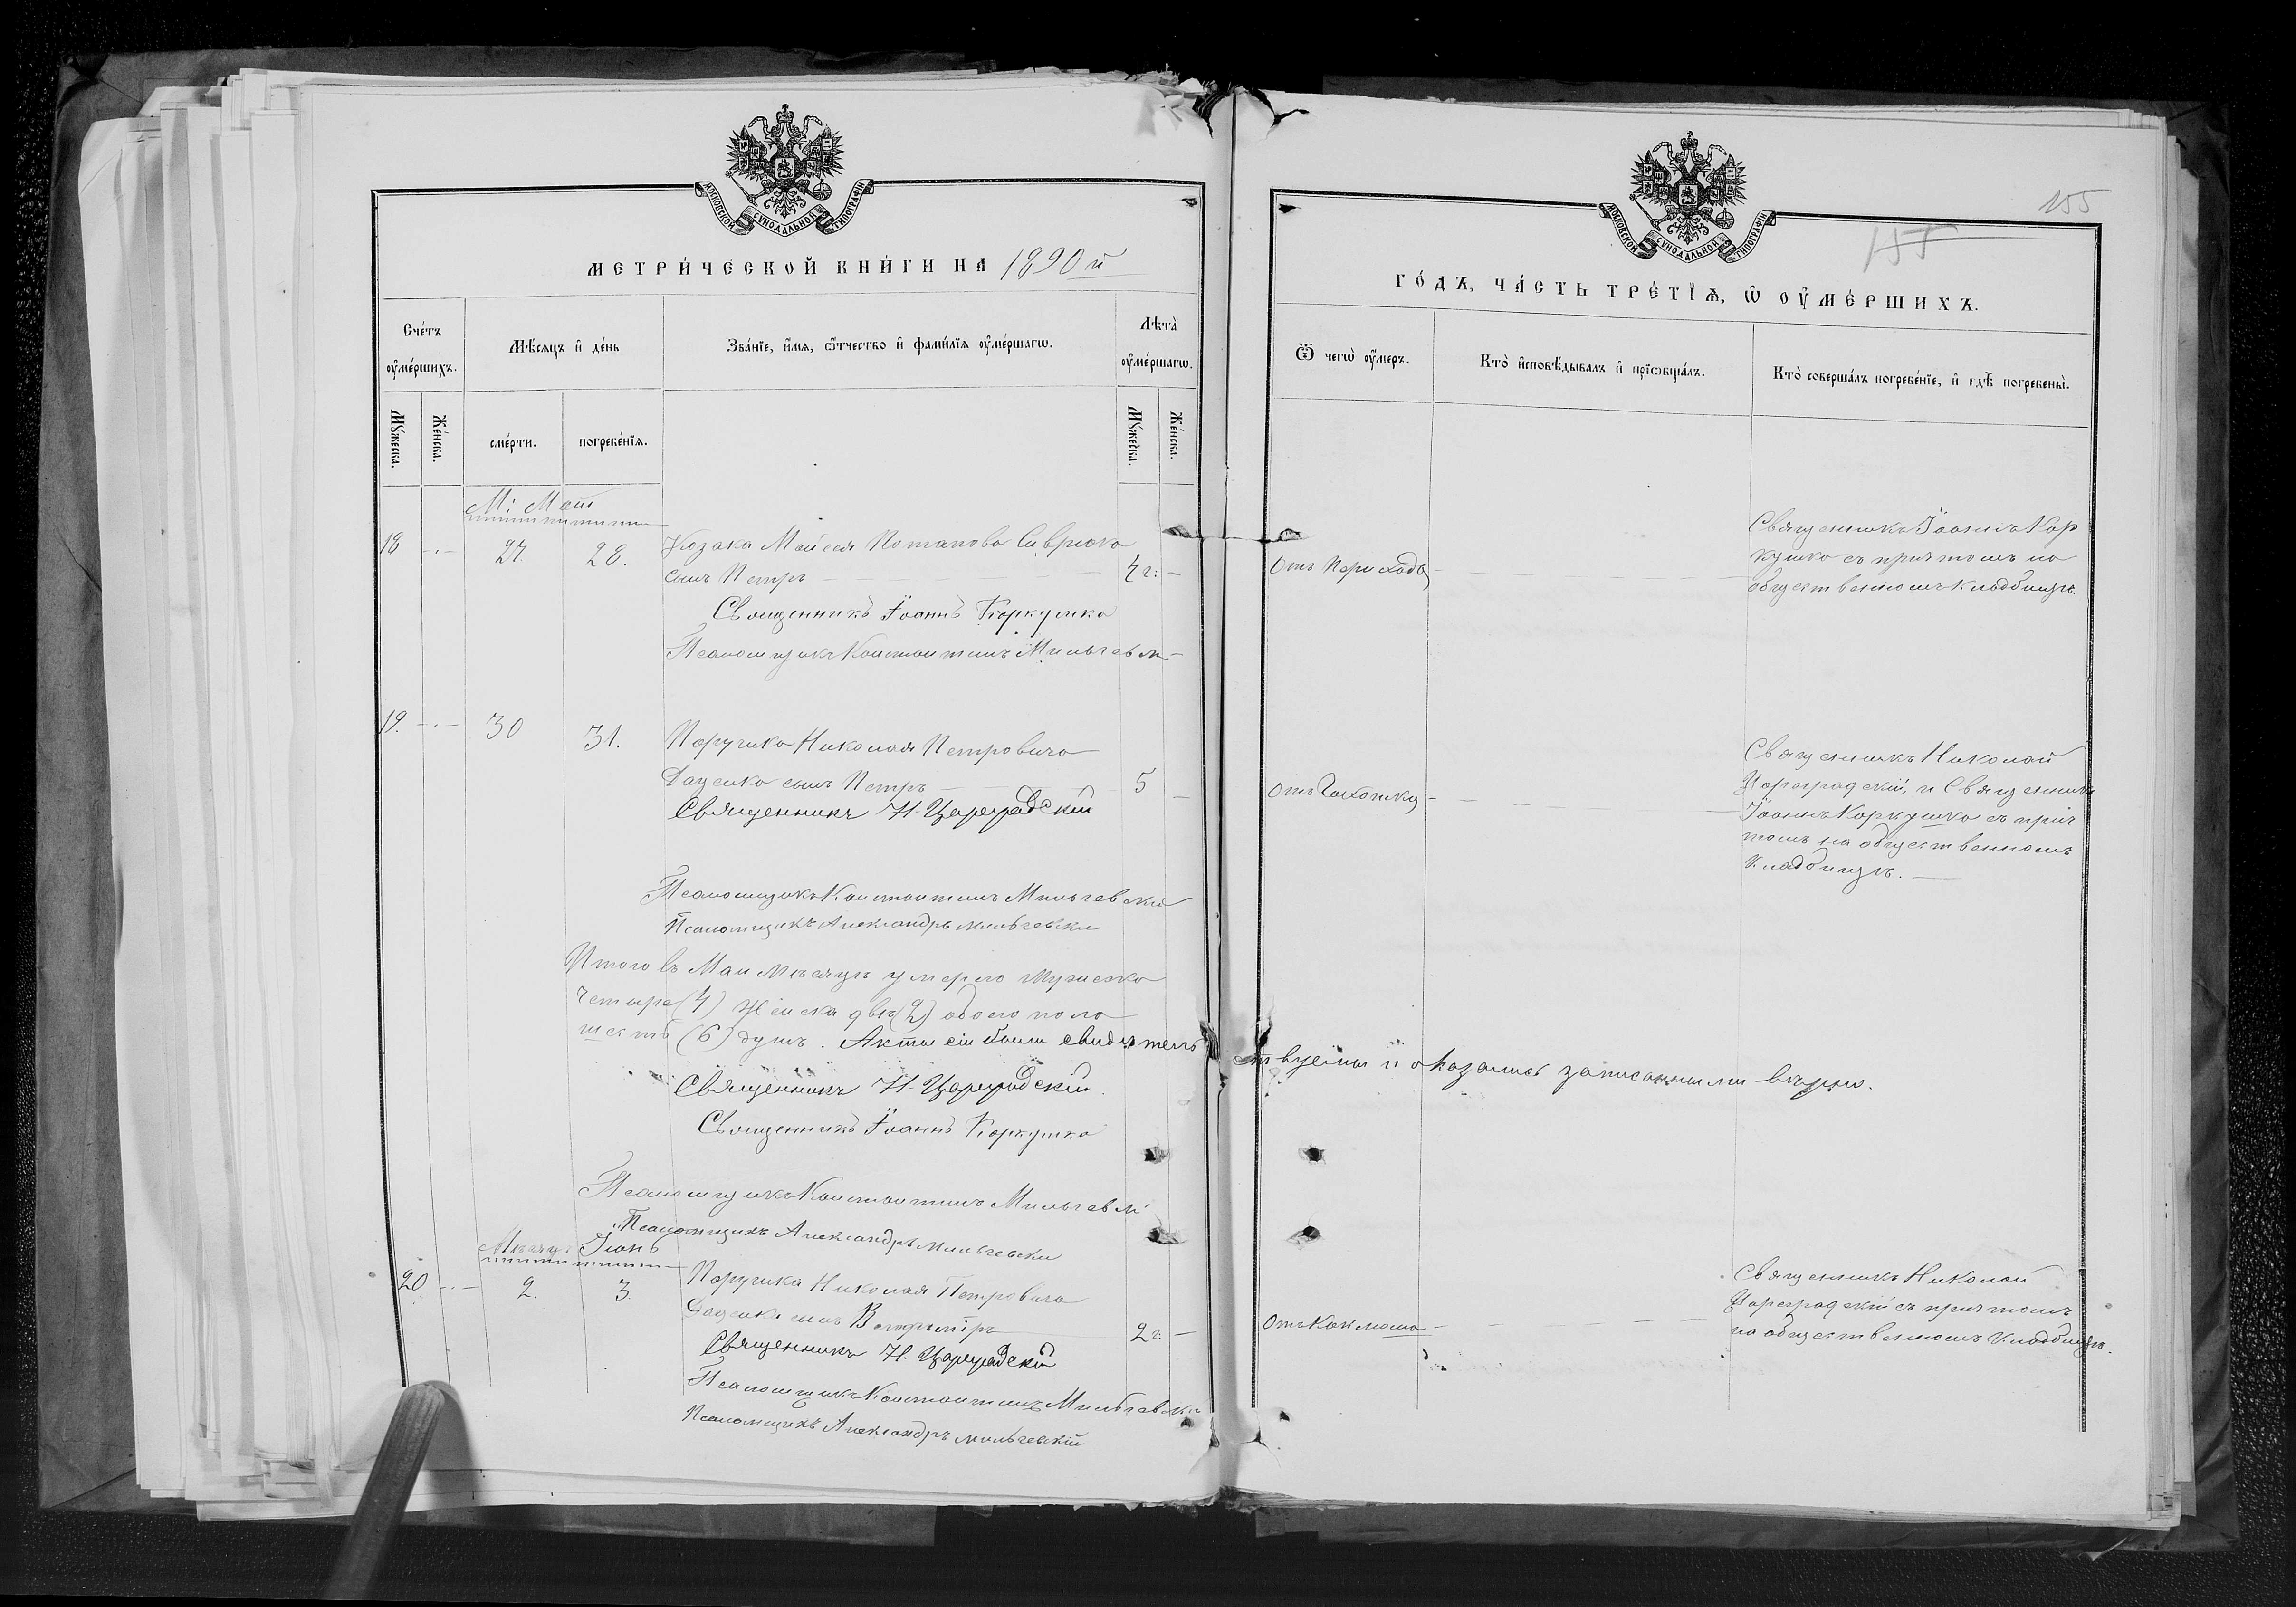 МОСКОВСКОЙ СѴНОДАЛЬНОЙ ТИПОГРАФІИ
МЕТРИ́ЧЕСКОЙ КНИ́ГИ НА 1890 й
Сче́тъ ᲂу҆ме́ршихъ.
Мѣ́сяцъ и҆ де́нь
Зва́нїе, и҆́мя, ѻ҆́тчество и҆ фамѝлїя ᲂу҆ме́ршагѡ.
Лѣта̀ ᲂу҆ме́ршагѡ.
Мꙋ́жеска.
Же́нска.
сме́рти.
погребе́нїѧ.
Мꙋ́жеска.
Же́нска.
М: Маій
18 27. 28. Козака Моисея Потапова
сынъ Петръ 4 г:
Священникъ Іоаннъ Коркушко
Псаломщикъ Константинъ Мильчевскі
19. 30 31. Поручика Николая Петровича
Даценко сынъ Петръ 5
Священникъ Н. Цареградскій
Псаломщикъ Константинъ Мильчевскі
Псаломщикъ Александръ Мильчевски
Итого въ Маи месяцѣ умерло Мужеска
четыре (4) женска двѣ (2) обоего пола
шесть (6) душъ. Акты сіи были свидѣтель
Священникъ Н. Цареградскій
Священникъ Іоаннъ Коркушко
Псаломщикъ Константинъ Мильчевскі
Псаломщикъ Александръ Мильчевски
Месяцъ Іюнь
20 2. 3. Поручика Николая Петровича
Даценки сынъ 2 г:
Священникъ Н. Цареградскій
Псаломщикъ Константинъ Мильчевскі
Псаломщикъ Александръ Мильчевскій
155
МОСКОВСКОЙ СѴНОДАЛЬНОЙ ТИПОГРАФІИ
155
ГО́ДЪ, ЧА́СТЬ ТРЕ́ТЇѦ, Ѡ҆ ОУ҆МЕ́РШИХЪ.
Ѿ чегѡ̀ ᲂу҆́меръ.
Кто̀ и҆сповѣ́дывалъ и҆ прїѡбща́лъ.
Кто̀ соверша́лъ погребе́нїе, и҆ гдѣ̀ погребены̀.
Священникъ Іоаннъ Кор
кушко съ причтомъ на
общественномъ кладбищѣ.
Отъ
Священникъ Николай
Цареградскій, и Священникъ
Іоаннъ Коркушко съ прич
томъ на общественномъ
кладбищѣ.
Отъ
ствуемы и оказались записанными вѣрно.
Священникъ Николай
Цареградскій съ причтомъ
на общественномъ кладбищѣ.
Отъ Коклюша